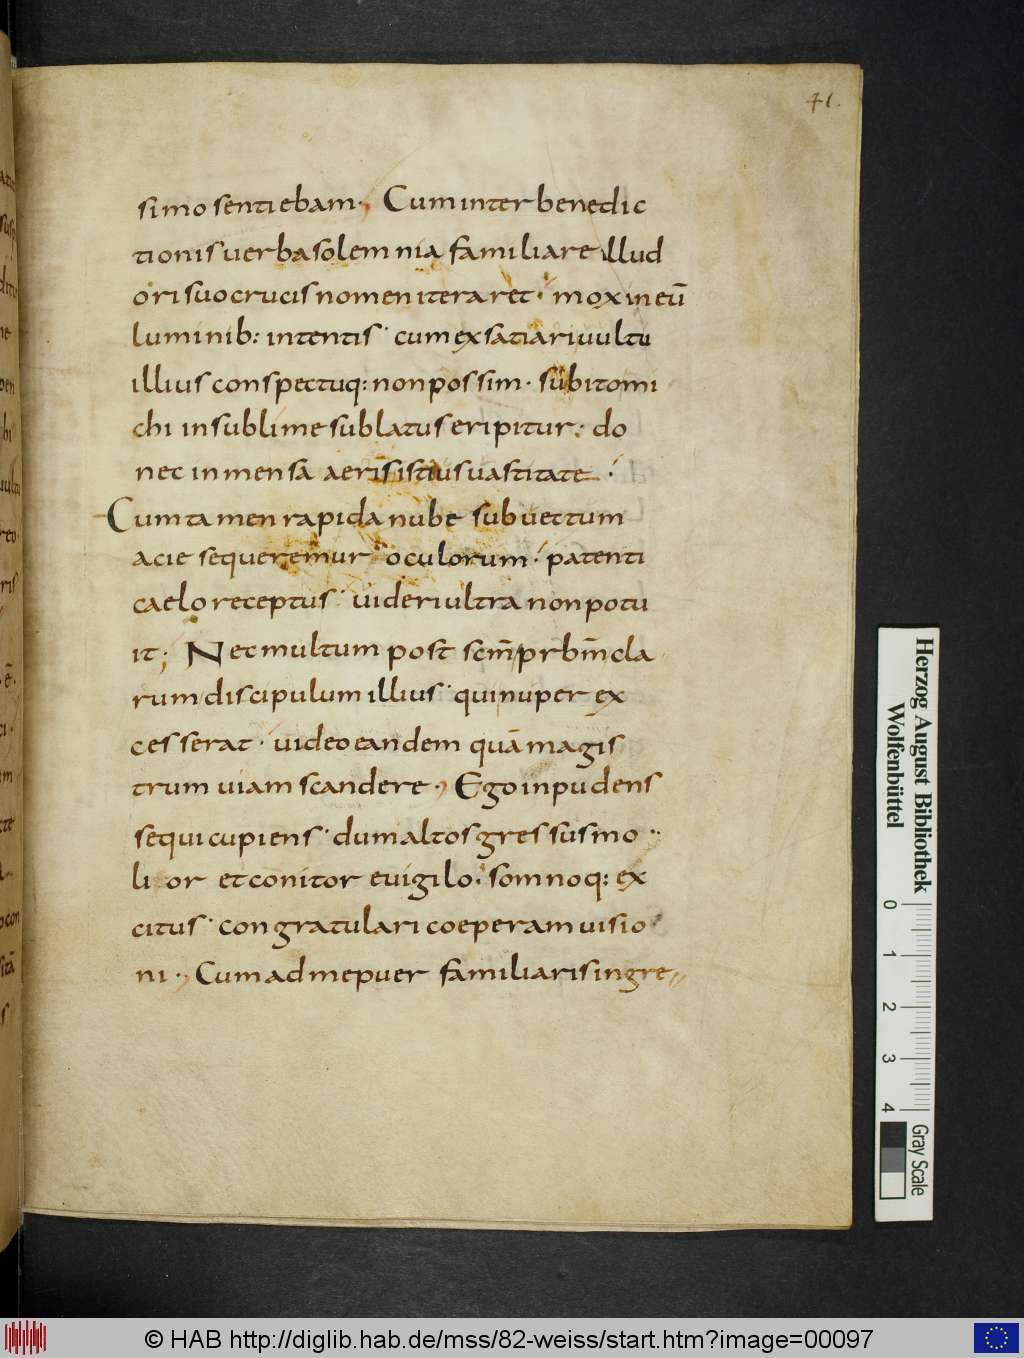 41.
simo sentiebam·, Cum inter benedic
tionis uerba solemnia familiare illud
ori suo crucis nomen iteraret· mox in eū
luminib: intentis· cum exsatiari uultu
illius conspectuq: non possim· subito mi
chi in sublime sublatus eripitur; do
nec inmensā aeris istius uastitate·
Cum tamen rapida nube subuectum
acie sequeremur oculorum· patenti
caelo receptus· uideri ultra non potu
it; Nec multum post scm̄ prbm̄ cla
rum discipulum illius· qui nuper ex
cesserat· uideo eandem quā magis
trum uiam scandere·, Ego inpudens
sequi cupiens· dum altos gressus mo
lior et conitor euigilo· somnoq: ex
citus· congratulari coeperam uisio
ni·, Cum ad me puer familiaris ingre
Herzog August Bibliothek
Wolfenbüttel
0 1 2 3 4
Gray Scale
© HAB http://diglib.hab.de/mss/82-weiss/start.htm?image=00097